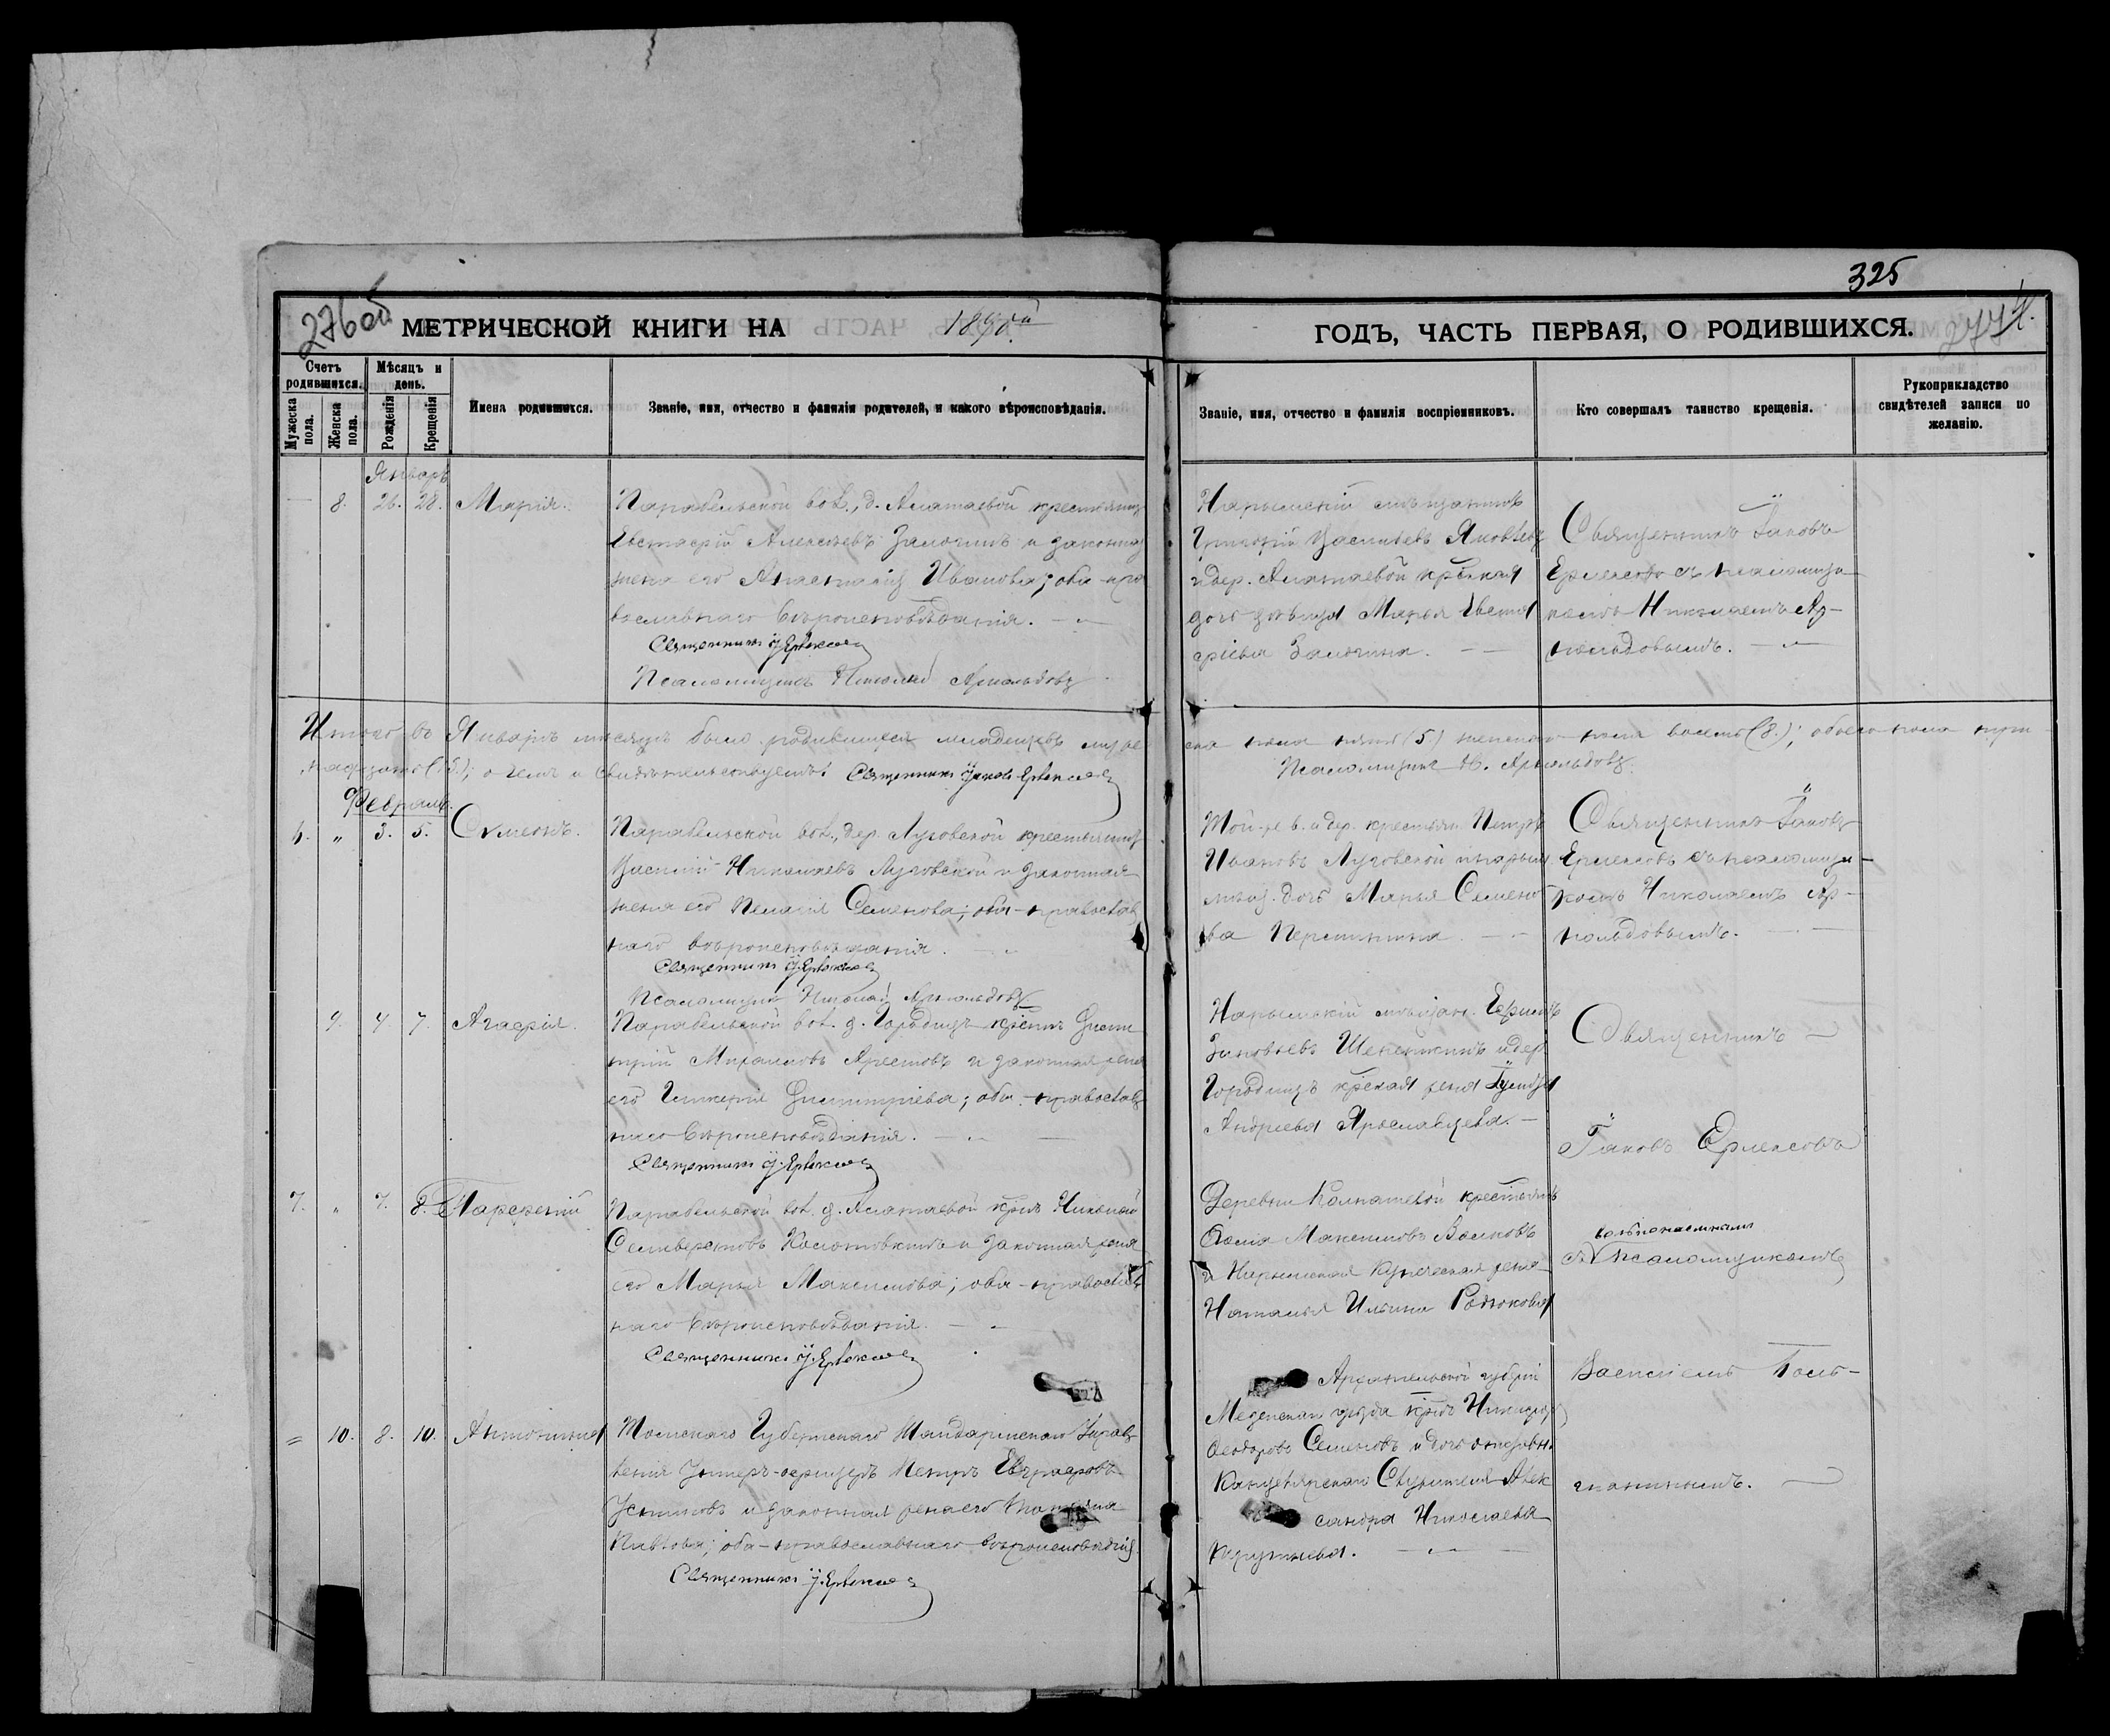 325
276об
МЕТРИЧЕСКОЙ КНИГИ НА 1898й
ГОДЪ, ЧАСТЬ ПЕРВАЯ, О РОДИВШИХСЯ.
277
Счетъ родившихся.
Мѣсяцъ и день.
Мужеска пола.
Женска пола.
Рожденія
Крещенія
Имена родившихся.
Званіе, имя, отчество и фамилія родителей, и какого вѣроисповѣданія.
Званіе, имя, отчество и фамилія воспріемниковъ.
Кто совершалъ таинство крещенія.
Рукоприкладство свидѣтелей записи по желанію.
Январь
8. 26. 28. Марія.
Парабельской вол., д. Алатаевой крестьянинъ
Алексѣевъ и законная
жена его Анастасія Иванова; оба пра
вославнаго вѣроисповѣданія.
Священникъ
Псаломщикъ Николай Арнольдовъ
Нарымскій мѣщанинъ
Григорій Васильевъ Яковлевъ
и дер. Алатаевой кр-ская
дочь дѣвица Марья Евста
фіева
Священникъ Іаковъ
съ псаломщи
комъ Николаемъ Ар-
нольдовымъ.
Итого въ Январѣ мѣсяцѣ было родившихся младенцевъ муже
ска пола пять (5) женскаго пола восемь (8); обоего пола три
надцать (13); о чемъ и свидѣтельствуемъ Священникъ Іаковъ
Псаломщикъ Н. Арнольдовъ.
Февраль.
6. " 3. 5. Сѵмеонъ.
Парабельской вол., дер. Луговской крестьянинъ
Василій Николаевъ Луговской и законная
жена его Пелагія Семенова; оба православ
наго вѣроисповѣданія.
Священникъ
Псаломщикъ Николай Арнольдовъ
Той-же в. и дер. крестьян. Петръ
Ивановъ Луговской и нарым
мѣщ. дочь Марья Семено
ва
Священникъ Іаковъ
съ псаломщи-
комъ Николаемъ Ар-
нольдовымъ.
9. 4 7. Агафія.
Парабельской вол. д. Городищъ Дими
трій Михаиловъ Арестовъ и законная жена
его Гликерія Димитріева; оба православ
наго вѣроисповѣданія.
Священникъ
Нарымскій мѣщан. Ефимъ
Зиновьевъ и дер.
Городищъ кр-ская жена
Андреева Ярославцева.
Священникъ
Іаковъ
7. " 7. 8. Парѳеній
Парабельской вол. д. Алатаевой Николай
Селиверстовъ и законная жена
его Марья Максимова; оба православ
наго вѣроисповѣданія.
Священникъ
Деревни Колпашевой крестьянинъ
Ѳома Максимовъ Волковъ
и Нарымская купеческая жена
Наталья Ильина Родюкова
вольнонаемнымъ
съ псаломщикомъ
= 10. 8. 10. Антонина
Томскаго Губернскаго Жандармскаго Управ
ленія Унтеръ-офицеръ Петръ Евграфовъ
Устиновъ и законная жена его
Павлова; оба православнаго вѣроисповѣданія.
Священникъ
Архангельской губерніи
Мезенскаго уѣзда Никифоръ
Ѳеодоровъ Семеновъ и дочь
Канцелярскаго Служителя Алек
сандра Николаева
Василіемъ